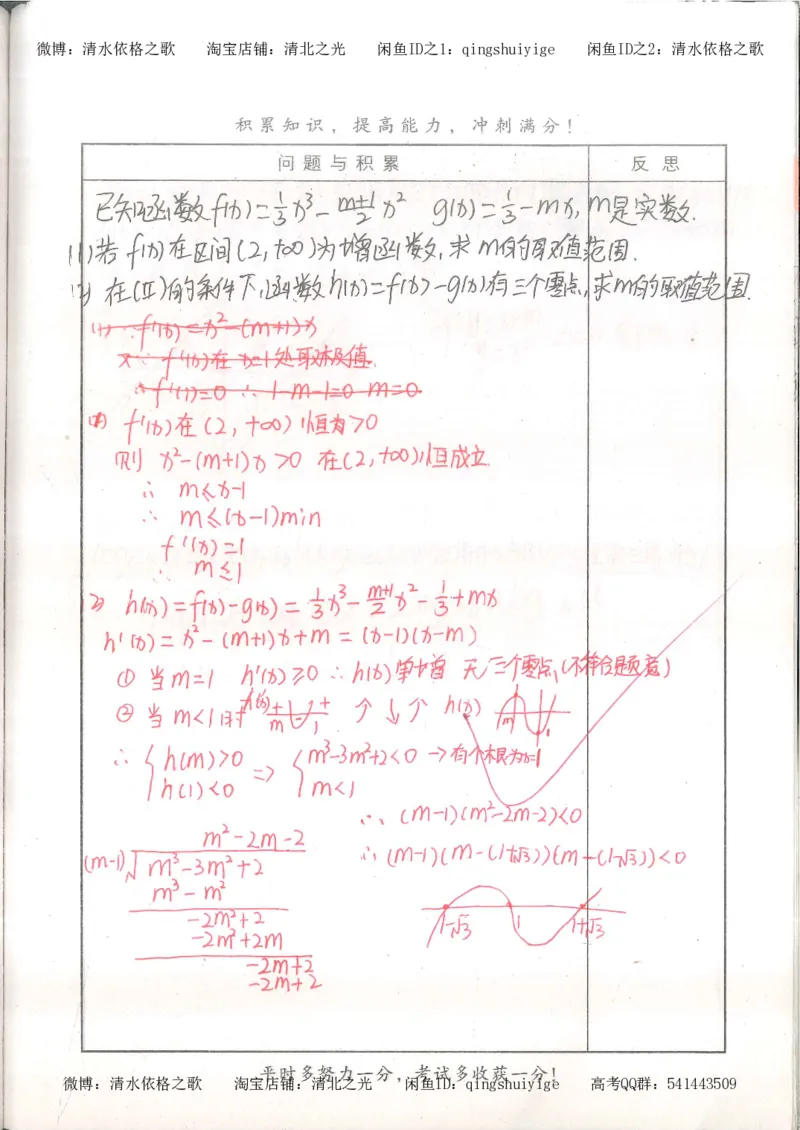 微博：清水依格之歌 淘宝店铺：清北之光 闲鱼ID之1：qingshuiyige 闲鱼ID之2：清水依格之歌
积累知识，提高能力，冲刺满分！
问题与积累 反思
已知函数f(x)=1/3x³-(m+1)/2x² g(x)=1/3-mx, m是实数.
(1)若f(x)在区间(2,+∞)为增函数,求m的取值范围.
(2)在(Ⅱ)的条件下,函数h(x)=f(x)-g(x)有三个零点,求m的取值范围.
(1) f'(x)=x²-(m+1)x
又∵f'(x)在x=1处取极值.
∴f'(1)=0 ∴1-m-1=0 m=0
(1) f'(x)在(2,+∞)恒为>0
则 x²-(m+1)x>0 在(2,+∞)恒成立.
∴ m≤x-1
∴ m≤(x-1)min
f'(x)=1
∴ m≤1
(2) h(x)=f(x)-g(x)=1/3x³-(m+1)/2x²-1/3+mx
h'(x)=x²-(m+1)x+m=(x-1)(x-m)
①当m=1 h'(x)≥0 ∴h(x)单增 无三个零点,(不符合题意)
②当m<1时 h'(x) + - + m 1 ↑↓↑ h(x) m 1
∴ { h(m)>0 h(1)<0 => { m³-3m²+2<0 →有个根为x=1 m<1
∴ (m-1)(m²-2m-2)<0
∴ (m-1)(m-(1+√3))(m-(1-√3))<0
m²-2m-2
(m-1)√m³-3m²+2
m³-m²
-2m²+2
-2m²+2m
-2m+2
-2m+2
1-√3 1 1+√3
平时多努力一分，考试多收获一分！
微博：清水依格之歌 淘宝店铺：清北之光 闲鱼ID之1：qingshuiyige 高考QQ群：541443509